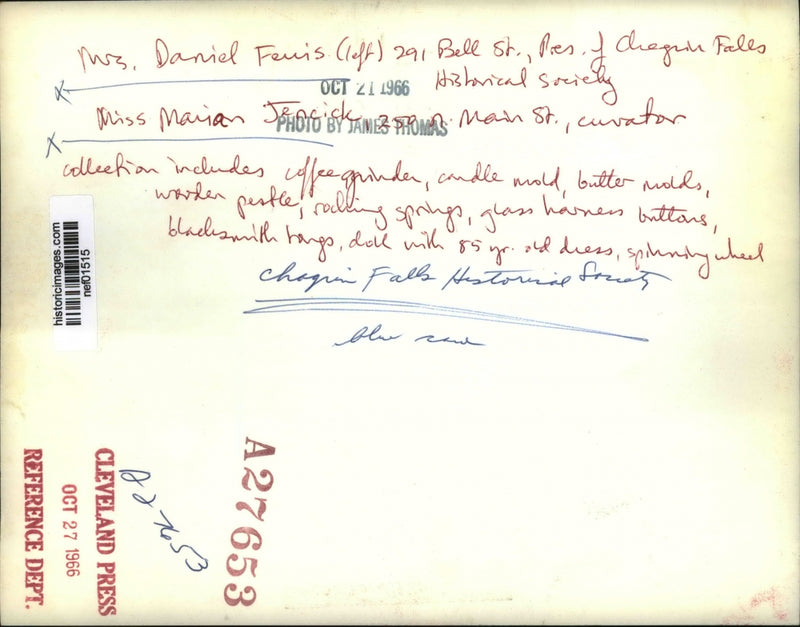 Mrs. Daniel Ferris (left) 291 Bell St., Pres. of Chagrin Falls
Historical Society
OCT 21 1966
Miss Marian Jencick, 259 N. Main St., curator
PHOTO BY JAMES THOMAS
collection includes coffee grinder, candle mold, butter molds,
wooden pestle, rocking springs, glass harness buttons,
blacksmith tongs, doll with 85 yr. old dress, spinning wheel
Chagrin Falls Historical Society
historicimages.com
nef01515
A27653
A27653
CLEVELAND PRESS
OCT 27 1966
REFERENCE DEPT.